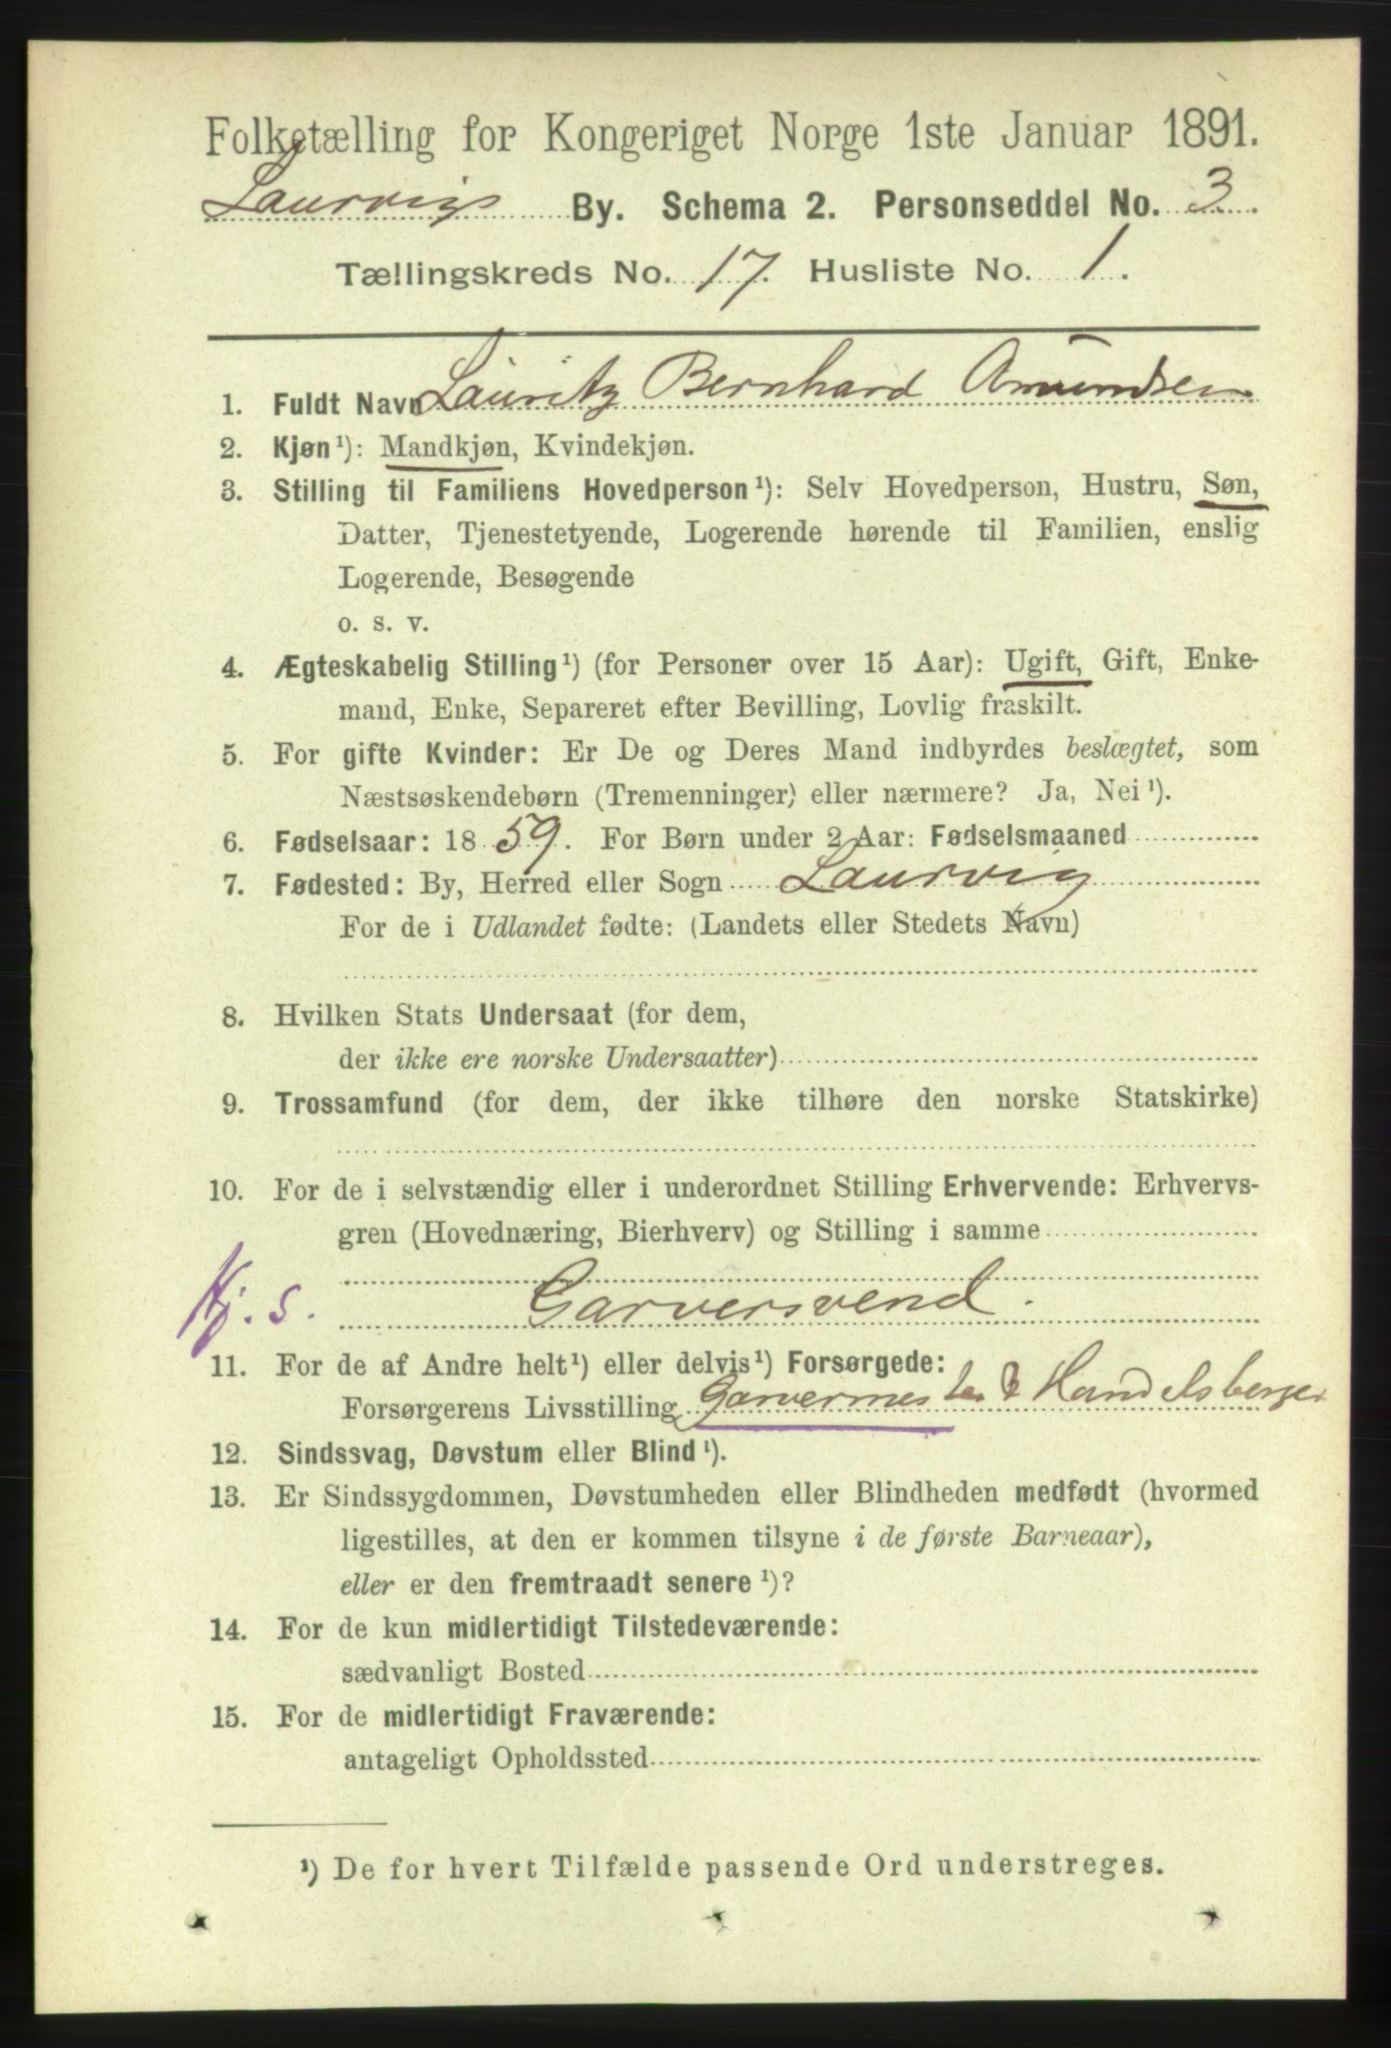 Folketælling for Kongeriget Norge 1ste Januar 1891.
Laurvigs By. Schema 2. Personseddel No. 3
Tællingskreds No. 17. Husliste No. 1.
1. Fuldt Navn Lauritz Bernhard Amundsen
2. Kjøn¹): Mandkjøn, Kvindekjøn.
3. Stilling til Familiens Hovedperson¹): Selv Hovedperson, Hustru, Søn,
Datter, Tjenestetyende, Logerende hørende til Familien, enslig
Logerende, Besøgende
o. s. v.
4. Ægteskabelig Stilling¹) (for Personer over 15 Aar): Ugift, Gift, Enke-
mand, Enke, Separeret efter Bevilling, Lovlig fraskilt.
5. For gifte Kvinder: Er De og Deres Mand indbyrdes beslægtet, som
Næstsøskendebørn (Tremenninger) eller nærmere? Ja, Nei¹).
6. Fødselsaar: 1859. For Børn under 2 Aar: Fødselsmaaned
7. Fødested: By, Herred eller Sogn Laurvig
For de i Udlandet fødte: (Landets eller Stedets Navn)
8. Hvilken Stats Undersaat (for dem,
der ikke ere norske Undersaatter)
9. Trossamfund (for dem, der ikke tilhøre den norske Statskirke)
10. For de i selvstændig eller i underordnet Stilling Erhvervende: Erhvervs-
gren (Hovednæring, Bierhverv) og Stilling i samme
Hj. s. Garversvend.
11. For de af Andre helt¹) eller delvis¹) Forsørgede:
Forsørgerens Livsstilling Garvermester & Handelsborger
12. Sindssvag, Døvstum eller Blind¹).
13. Er Sindssygdommen, Døvstumheden eller Blindheden medfødt (hvormed
ligestilles, at den er kommen tilsyne i de første Barneaar),
eller er den fremtraadt senere¹)?
14. For de kun midlertidigt Tilstedeværende:
sædvanligt Bosted
15. For de midlertidigt Fraværende:
antageligt Opholdssted
¹) De for hvert Tilfælde passende Ord understreges.